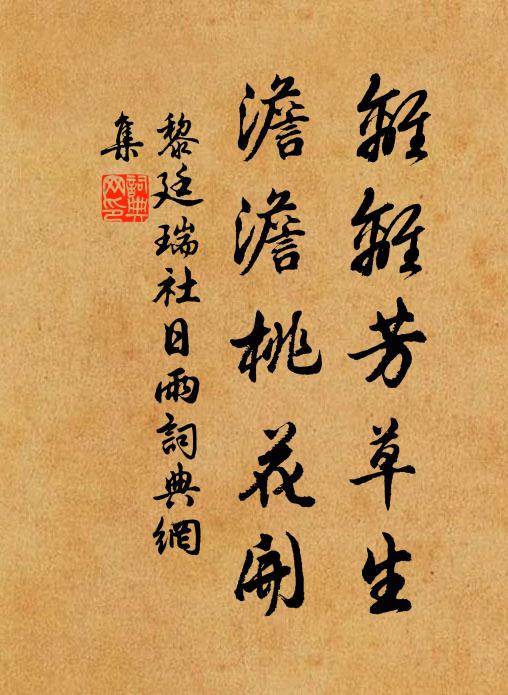 離離芳草生
澹澹桃花開
黎廷瑞社日雨詞典網
集
詞典
网印